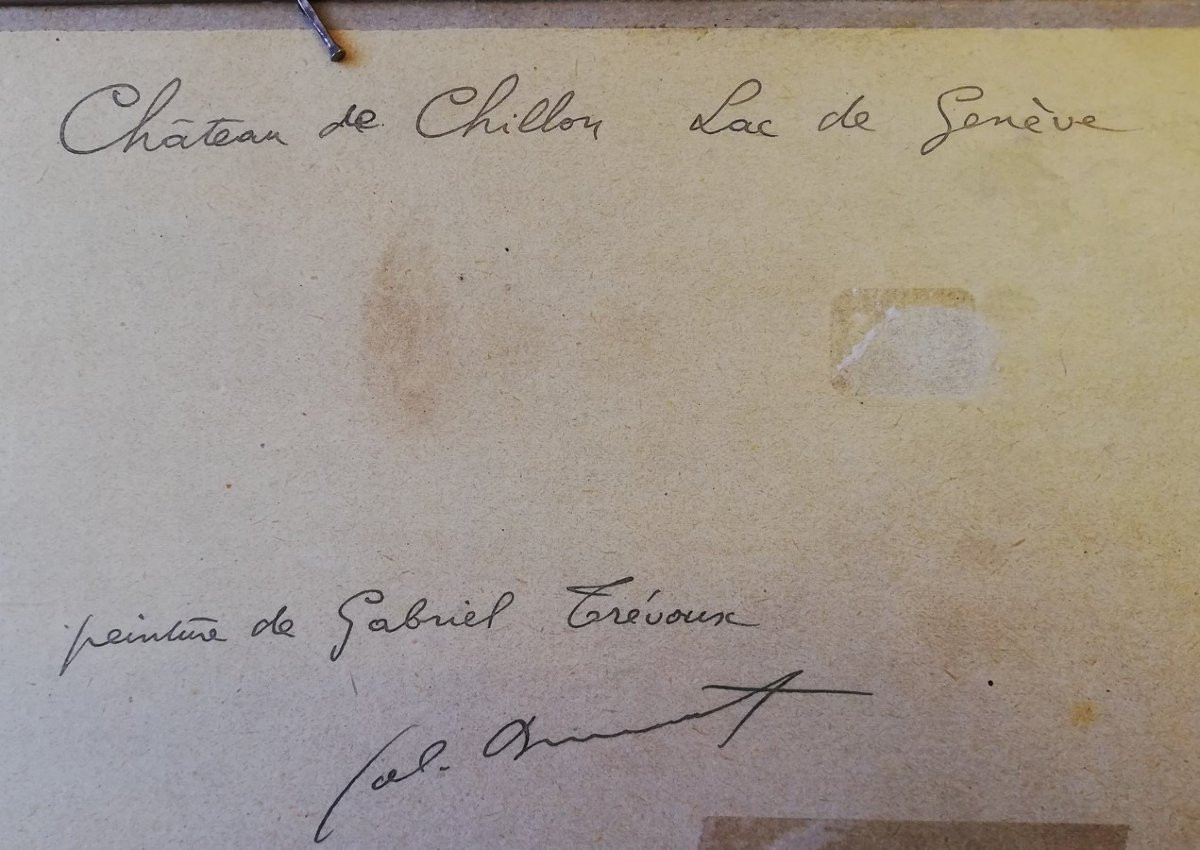 Château de Chillon Lac de Genève
peinture de Gabriel Trévoux